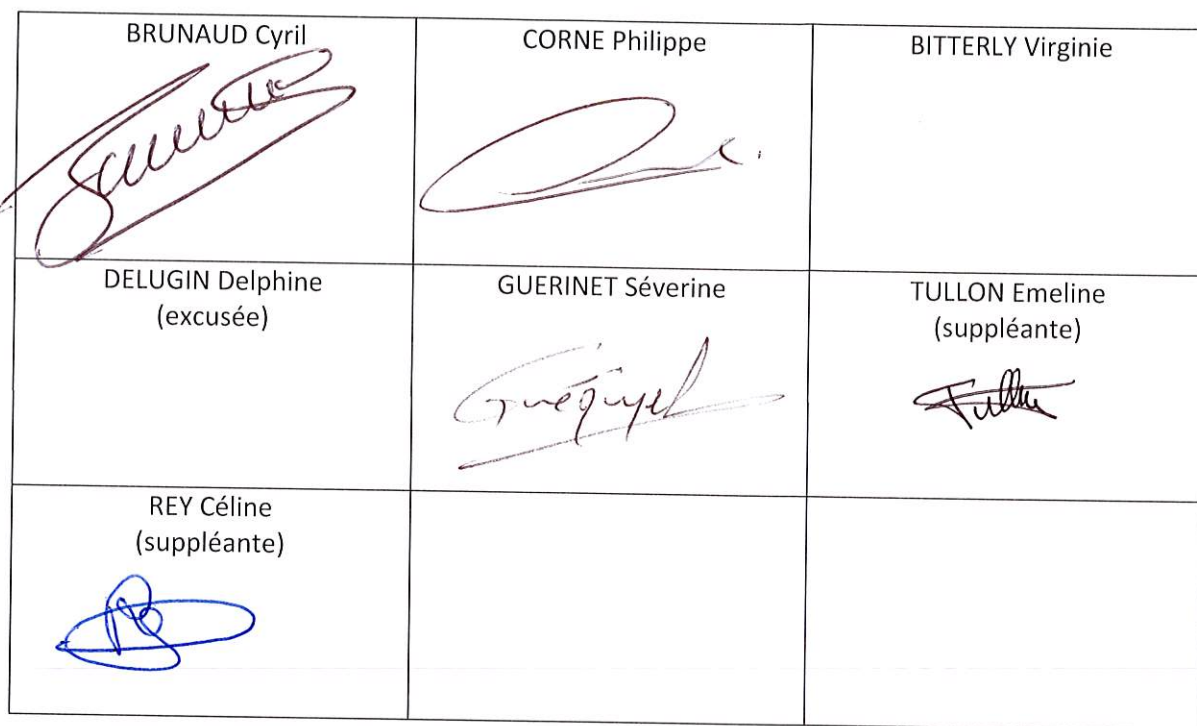 BRUNAUD Cyril
CORNE Philippe
BITTERLY Virginie
DELUGIN Delphine
(excusée)
GUERINET Séverine
TULLON Emeline
(suppléante)
REY Céline
(suppléante)